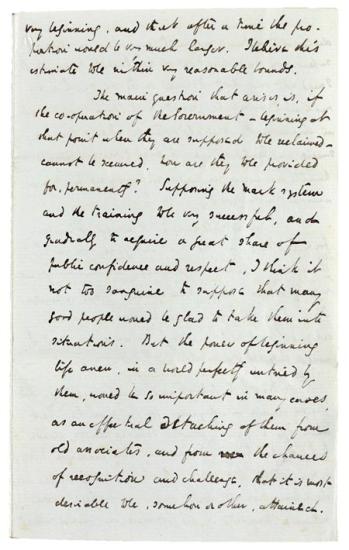 very beginning, and that after a time the pro-
portion would be very much larger. I believe this
estimate to be within very reasonable bounds.
The main question that arises, is, if
the co-operation of the Government - beginning at
that point when they are supposed to be reclaimed -
cannot be secured, how are they to be provided
for, permanently? Supposing the mark system
and the training to be very successful, and
gradually to acquire a great share of
public confidence and respect, I think it
not too sanguine to suppose that many
good people would be glad to take them into
situations. But the power of beginning
life anew, in a world perfectly untried by
them, would be so important in many cases,
as an effectual detaching of them from
old associates, and from the chances
of recognition and challenge, that it is most
desirable to be, somehow or other, attained.